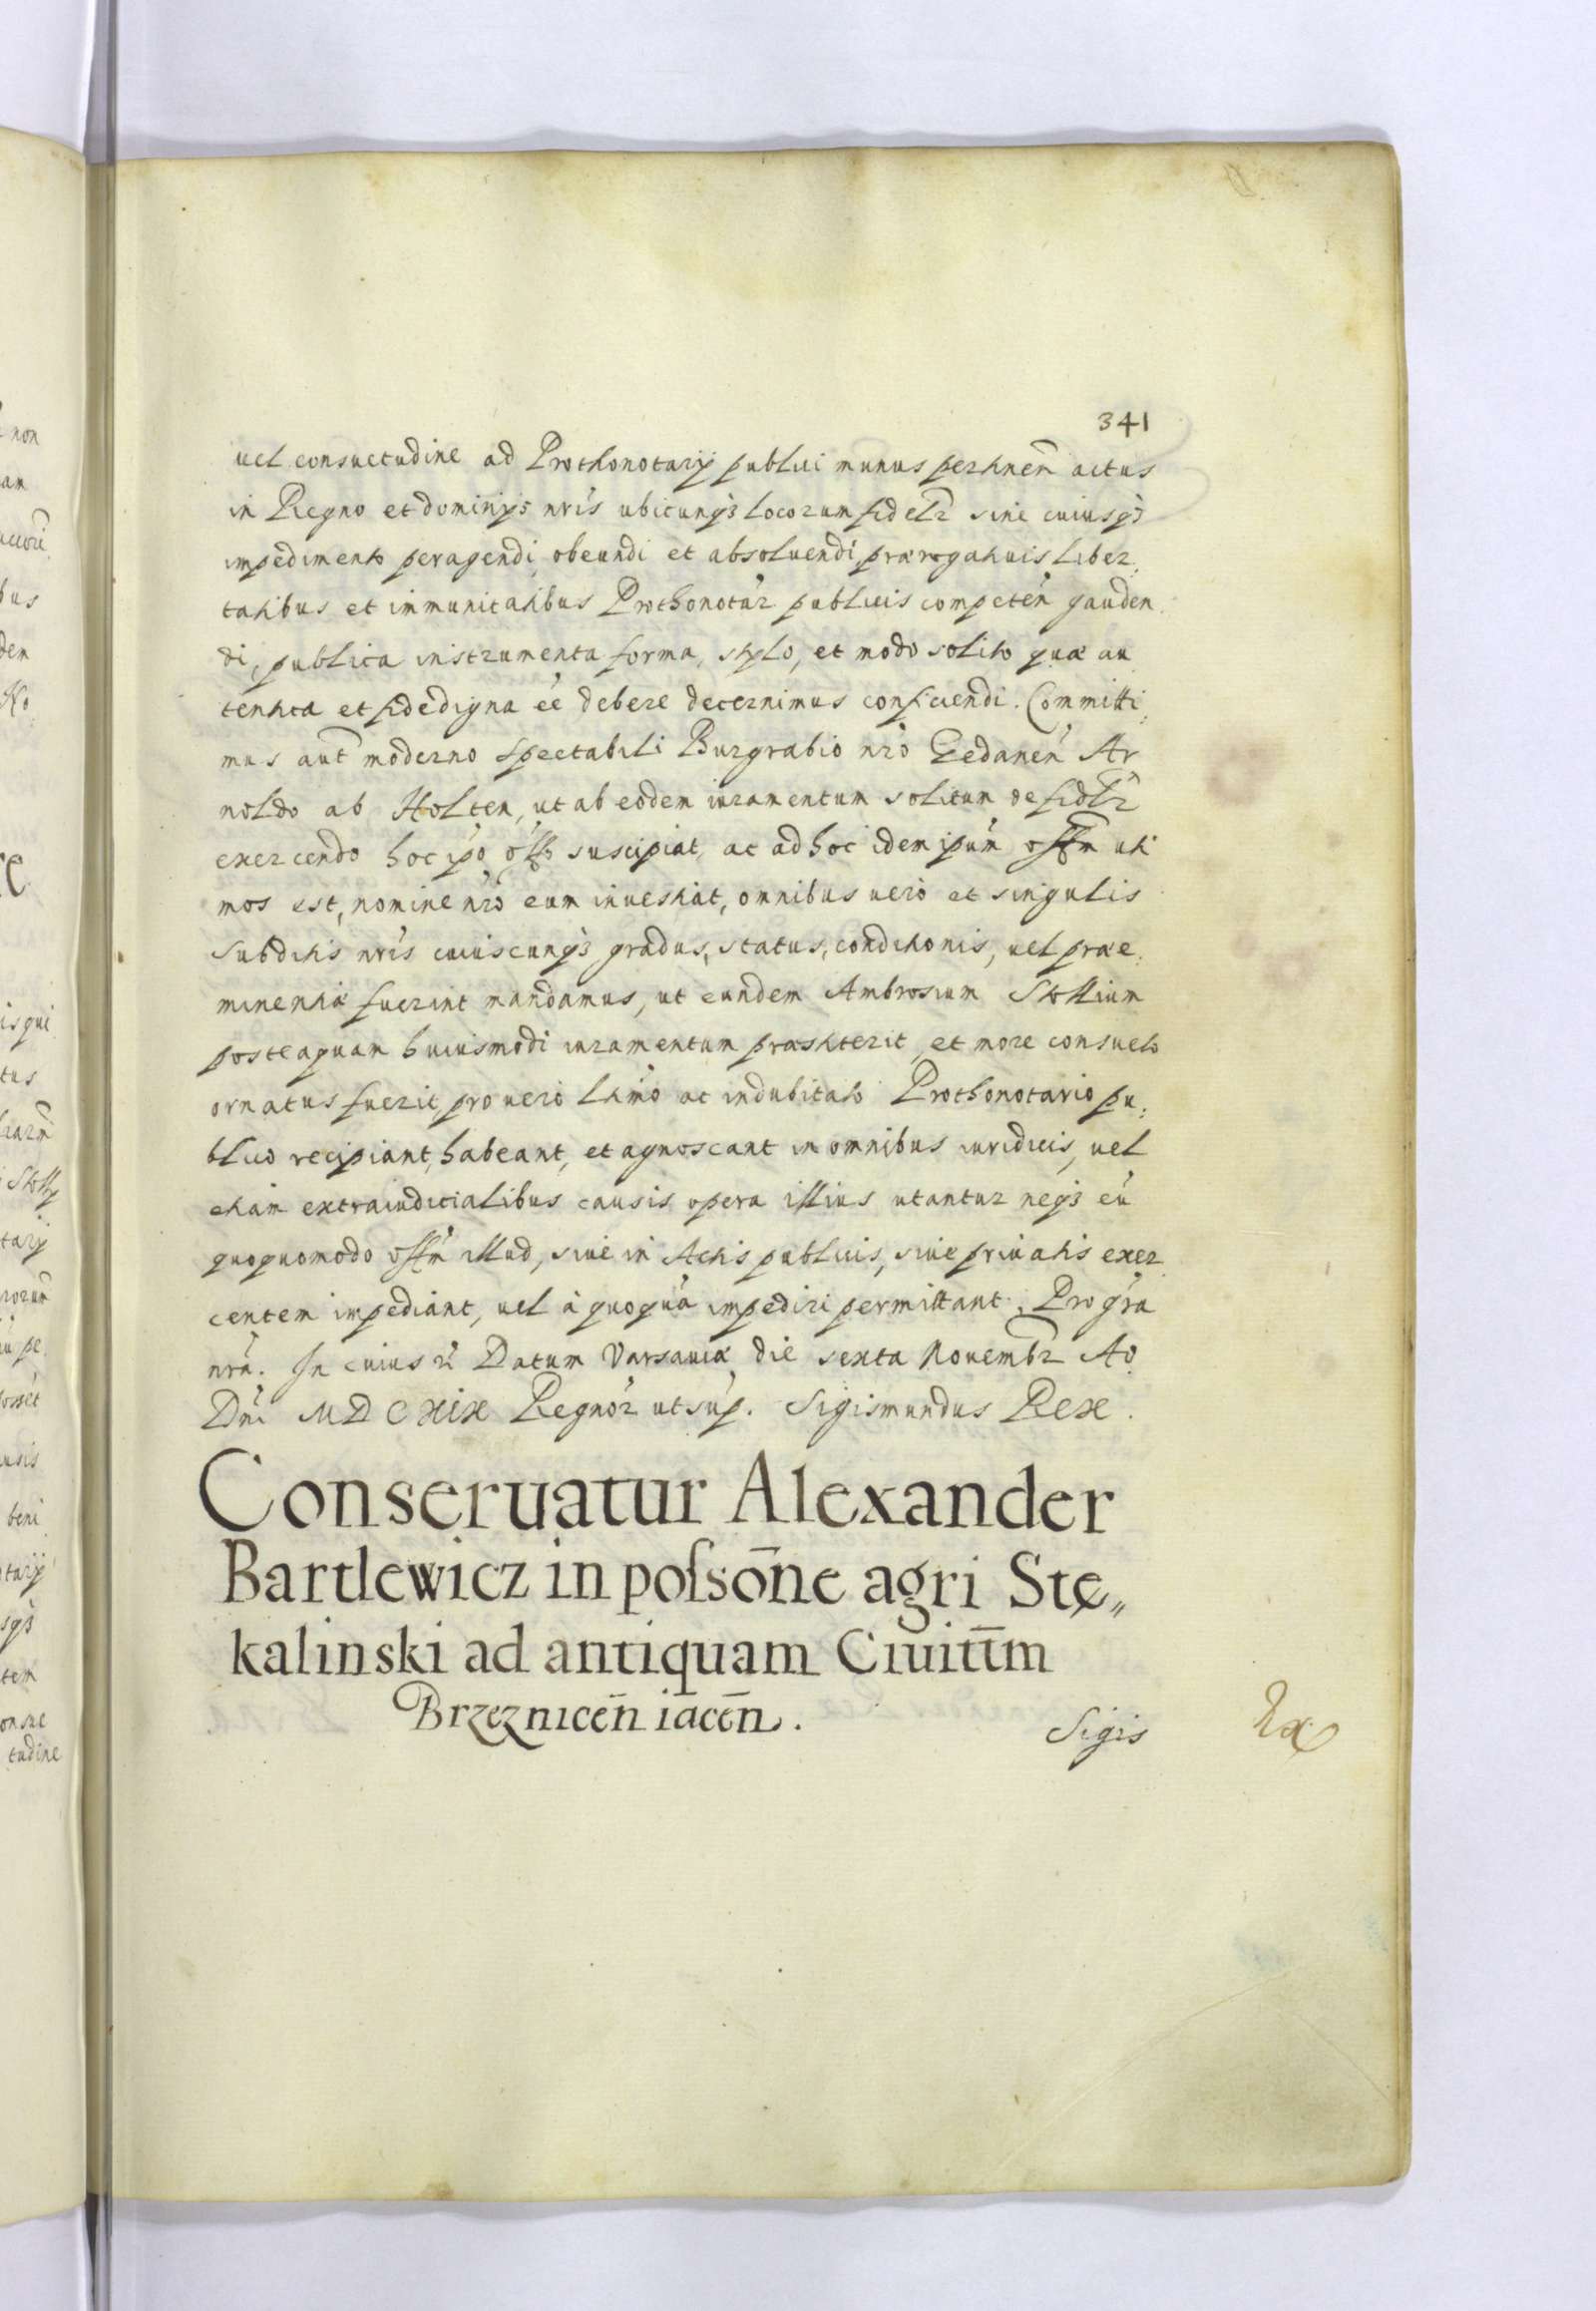 341
uel consuetudine ad Prothonotarij publici munus pertinen̄ actus
in Regno et dominijs nris ubicunqȝ locorum fidelr̄ sine cuiusqȝ
impedimento peragendi, obeundi et absoluendi, prærogatiuis liber,
tatibus et immunitatibus Prothonotar publicis competen gauden
di, publica instrumenta forma, stylo, et modo solito quæ au
tentica et fidedigna ee debere decernimus conficiendi. Committi,
mus aut̄ moderno spectabili Burgrabio nro Gedanen Ar
noldo ab Holten, ut ab eodem iuramentum solitum de fidlr̄
exercendo hoc ipo offo suscipiat, ac ad hoc idem ipum offm uti
mos est, nomine nro eum inuestiat, omnibus uero et singulis
Subditis nris cuiuscunqȝ gradus, status, conditionis, uel præe,
minentiæ fuerint mandamus, ut eundem Ambrosium Stollium
posteaquam huiusmodi iuramentum præstiterit, et more consueto
ornatus fuerit, pro uero ltimo ac indubitato Prothonotario pu,
blico recipiant, habeant, et agnoscant in omnibus iuridicis, uel
etiam extraiudicialibus causis opera illius utantur neqȝ eu
quoquomodo offm illud, siue in Actis publicis, siue priuatis exer
centem impediant, uel à quoqua impediri permittant. Pro gra
nra. In cuius rei Datum Varsauiæ die sexta Nouembr̄ Ao
Dni MDCXIX Regnor ut sup. Sigismundus Rex.
Conseruatur Alexander
Bartlewicz in poſsōne agri Stę„
kalinski ad antiquam Ciuitt̄m
Brzeznicen̄ iacen̄.
Sigis